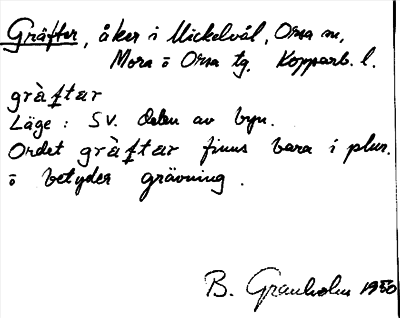 Gräfter, åker i Mickelvål, Orsa sn,
Mora o Orsa tg. Kopparb. l.
gräftär
Läge: SV. delen av byn.
Ordet gräftär finns bara i plur.
o betyder grävning.
B. Granholm 1950